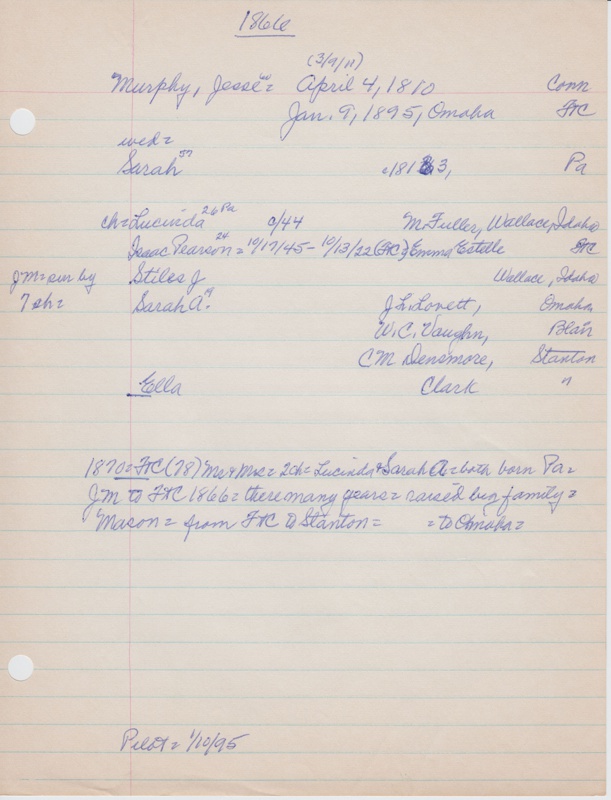 1866
(3/9/11)
Murphy, Jesse⁶⁰ = April 4, 1810 Conn
Jan. 9, 1895, Omaha FtC
wed =
Sarah⁵⁷ c/1813, Pa
ch = Lucinda ²⁶ ᴾᵃ c/44 M. Fuller, Wallace, Idaho
Isaac Pearson ²⁴ = 10/17/45 - 10/13/22 (FtC) Emma Estelle FtC
JM = sur by Stiles J Wallace, Idaho
7 ch = Sarah A. ¹⁹ J. L. Lovett, Omaha
W. C. Vaughn, Blair
C M Densmore, Stanton
Ella Clark "
1870 = FtC (78) Mr & Mrs = 2ch = Lucinda & Sarah A = both born Pa =
JM to FtC 1866 = there many years = raised big family =
Mason = from FtC to Stanton = = to Omaha =
Pilot = 1/10/95